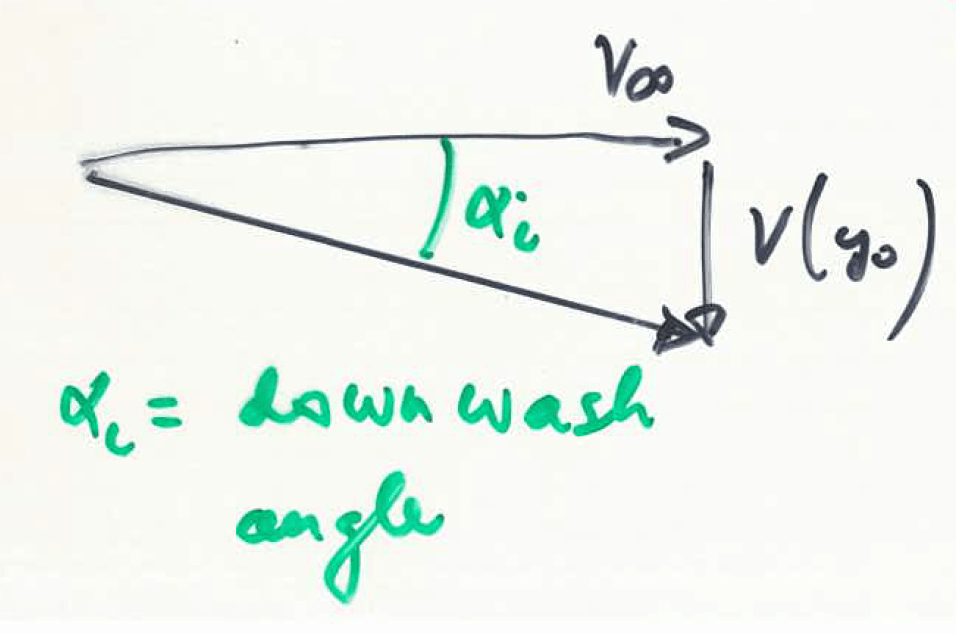 V∞
V(y₀)
αᵢ
αᵢ = downwash
angle